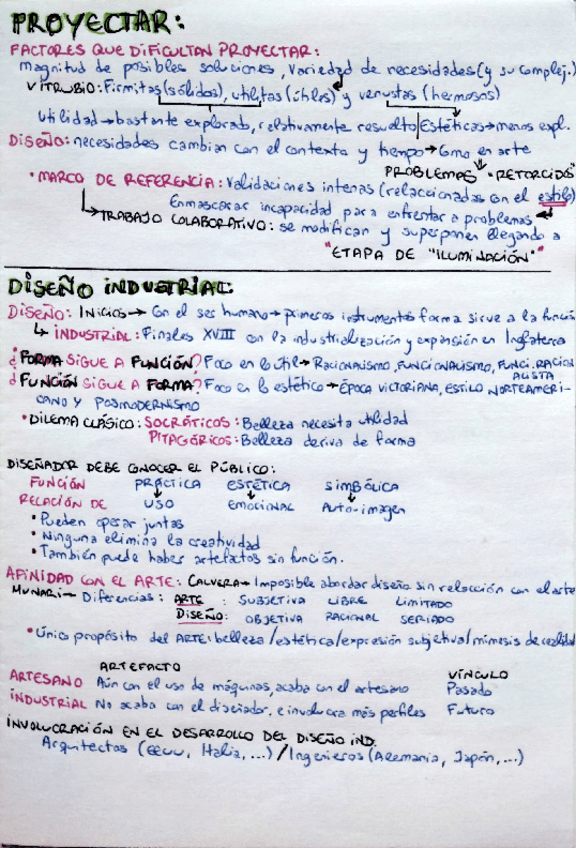 PROYECTAR:
FACTORES QUE DIFICULTAN PROYECTAR:
Magnitud de posibles soluciones, Variedad de necesidades (y su complej.)
VITRUBIO: Firmitas (sólidos), utilitas (útiles) y venustas (hermosos)
Utilidad → bastante explorado, relativamente resuelto / Estéticas → menos expl.
DISEÑO: necesidades cambian con el contexto y tiempo → Como en arte
PROBLEMAS "RETORCIDOS"
• MARCO DE REFERENCIA: Validaciones internas (relaccionadas con el estilo)
Enmascarar incapacidad para enfrentar a problemas
→ TRABAJO COLABORATIVO: se modifican y superponen llegando a
"ETAPA DE "ILUMINACIÓN"
DISEÑO INDUSTRIAL:
DISEÑO: INICIOS → Con el ser humano → primeros instrumentos forma sirve a la función
↳ INDUSTRIAL: Finales XVIII con la industrialización y expansión en Inglaterra
¿FORMA SIGUE A FUNCIÓN? Foco en lo útil → RACIONALISMO, FUNCIONALISMO, FUNCI. RACION
ALISTA
¿FUNCIÓN SIGUE A FORMA? Foco en lo estético → ÉPOCA VICTORIANA, ESTILO NORTEAMERI-
CANO Y POSMODERNISMO
• DILEMA CLÁSICO: SOCRÁTICOS: Belleza necesita utilidad
PITAGÓRICOS: Belleza deriva de forma
DISEÑADOR DEBE CONOCER EL PÚBLICO:
FUNCIÓN PRÁCTICA ESTÉTICA SIMBÓLICA
RELACIÓN DE USO EMOCIONAL Auto-imagen
• Pueden operar juntas
• Ninguna elimina la creatividad
• También puede haber artefactos sin función.
AFINIDAD CON EL ARTE: CALVERA → Imposible abordar diseño sin relacción con el arte
MUNARI → Diferencias: ARTE : SUBJETIVA LIBRE LIMITADO
DISEÑO: OBJETIVA RACIONAL SERIADO
• Único propósito del ARTE: belleza/estética/expresión subjetiva/mimesis de realidad
ARTEFACTO VÍNCULO
ARTESANO Aún con el uso de máquinas, acaba con el artesano Pasado
INDUSTRIAL No acaba con el diseñador, e involucra más perfiles Futuro
INVOLUCRACIÓN EN EL DESARROLLO DEL DISEÑO IND.
Arquitectos (EEUU, Italia, ...) / Ingenieros (Alemania, Japón, ...)